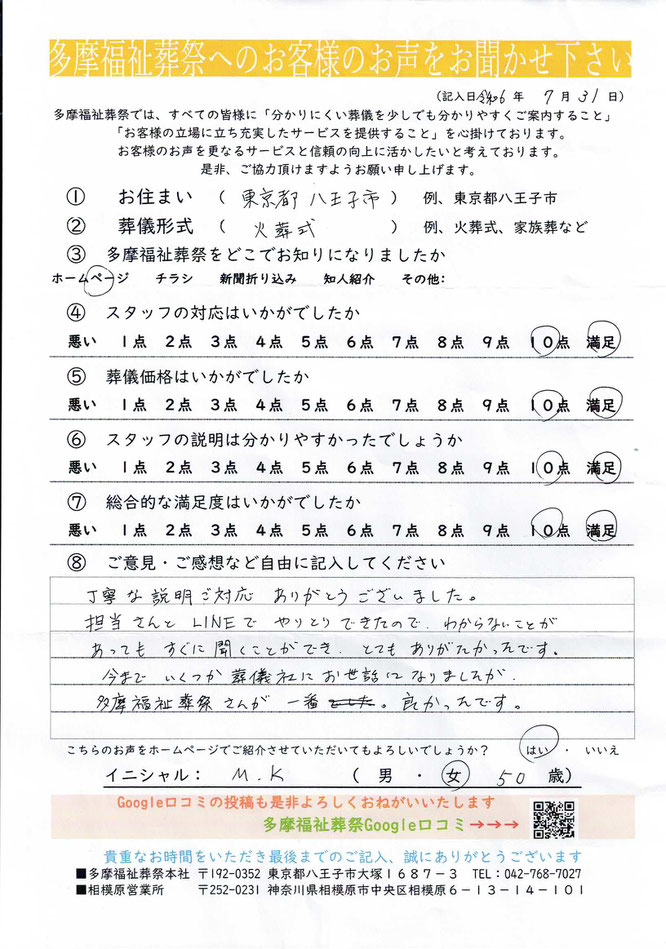 多摩福祉葬祭へのお客様のお声をお聞かせ下さい
(記入日 令和6 年 7 月 31 日)
多摩福祉葬祭では、すべての皆様に「分かりにくい葬儀を少しでも分かりやすくご案内すること」
「お客様の立場に立ち充実したサービスを提供すること」を心掛けております。
お客様のお声を更なるサービスと信頼の向上に活かしたいと考えております。
是非、ご協力頂けますようお願い申し上げます。
① お住まい ( 東京都 八王子市 ) 例、東京都八王子市
② 葬儀形式 ( 火葬式 ) 例、火葬式、家族葬など
③ 多摩福祉葬祭をどこでお知りになりましたか
ホームページ チラシ 新聞折り込み 知人紹介 その他:
④ スタッフの対応はいかがでしたか
悪い 1点 2点 3点 4点 5点 6点 7点 8点 9点 10点 満足
⑤ 葬儀価格はいかがでしたか
悪い 1点 2点 3点 4点 5点 6点 7点 8点 9点 10点 満足
⑥ スタッフの説明は分かりやすかったでしょうか
悪い 1点 2点 3点 4点 5点 6点 7点 8点 9点 10点 満足
⑦ 総合的な満足度はいかがでしたか
悪い 1点 2点 3点 4点 5点 6点 7点 8点 9点 10点 満足
⑧ ご意見・ご感想など自由に記入してください
丁寧な説明ご対応 ありがとうございました。
担当さんと LINEで やりとりできたので、わからないことが
あっても すぐに聞くことができ、とてもありがたかったです。
今まで いくつか葬儀社にお世話になりましたが、
多摩福祉葬祭さんが 一番 でした。良かったです。
こちらのお声をホームページでご紹介させていただいてもよろしいでしょうか? はい ・ いいえ
イニシャル: M.K ( 男 ・ 女 50 歳)
Google口コミの投稿も是非よろしくおねがいいたします
多摩福祉葬祭Google口コミ→→→
貴重なお時間をいただき最後までのご記入、誠にありがとうございます
■多摩福祉葬祭本社 〒192-0352 東京都八王子市大塚1687-3 TEL:042-768-7027
■相模原営業所 〒252-0231 神奈川県相模原市中央区相模原6-13-14-101